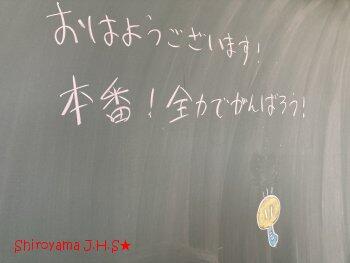 おはようございます!
本番!全力でがんばろう!
Shiroyama J.H.S★